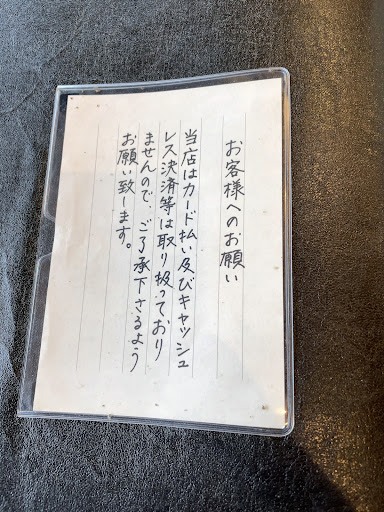 お客様へのお願い
当店はカード払い及びキャッシュ
レス決済等は取り扱っており
ませんので、ご了承下さるよう
お願い致します。